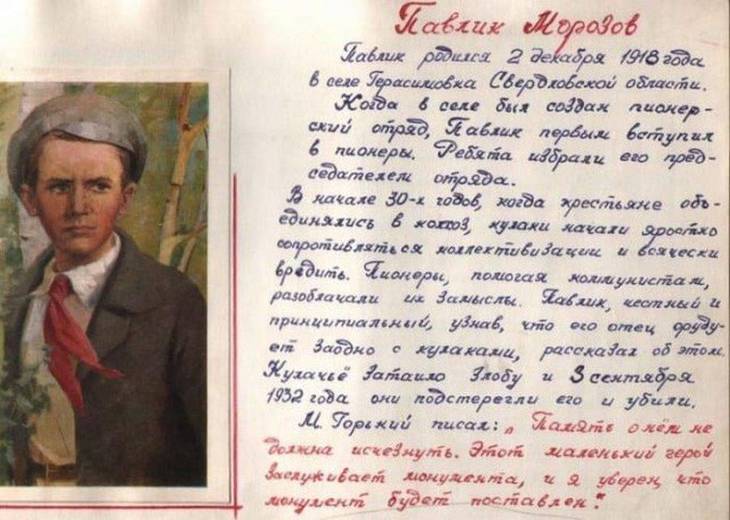 Павлик Морозов
Павлик родился 2 декабря 1918 года
в селе Герасимовка Свердловской области.
Когда в селе был создан пионер-
ский отряд, Павлик первым вступил
в пионеры. Ребята избрали его пред-
седателем отряда.
В начале 30-х годов, когда крестьяне объ-
единялись в колхоз, кулаки начали яростно
сопротивляться коллективизации и всячески
вредить. Пионеры, помогая коммунистам,
разоблачали их замыслы. Павлик, честный и
принципиальный, узнав, что его отец оруду-
ет заодно с кулаками, рассказал об этом.
Кулачьё затаило злобу и 3 сентября
1932 года они подстерегли его и убили.
М. Горький писал: „Память о нём не
должна исчезнуть. Этот маленький герой
заслуживает монумента, и я уверен, что
монумент будет поставлен".